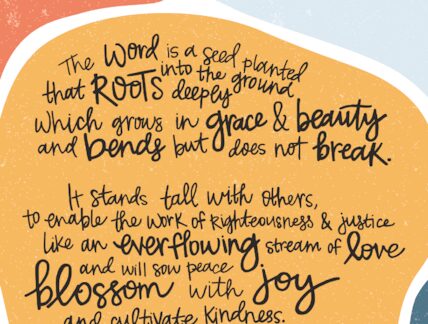 The Word is a seed planted
that ROOTS deeply into the ground
which grows in grace & beauty
and bends but does not break.
It stands tall with others,
to enable the work of righteousness & justice
like an everflowing stream of love
and will sow peace
blossom with joy
and cultivate kindness.